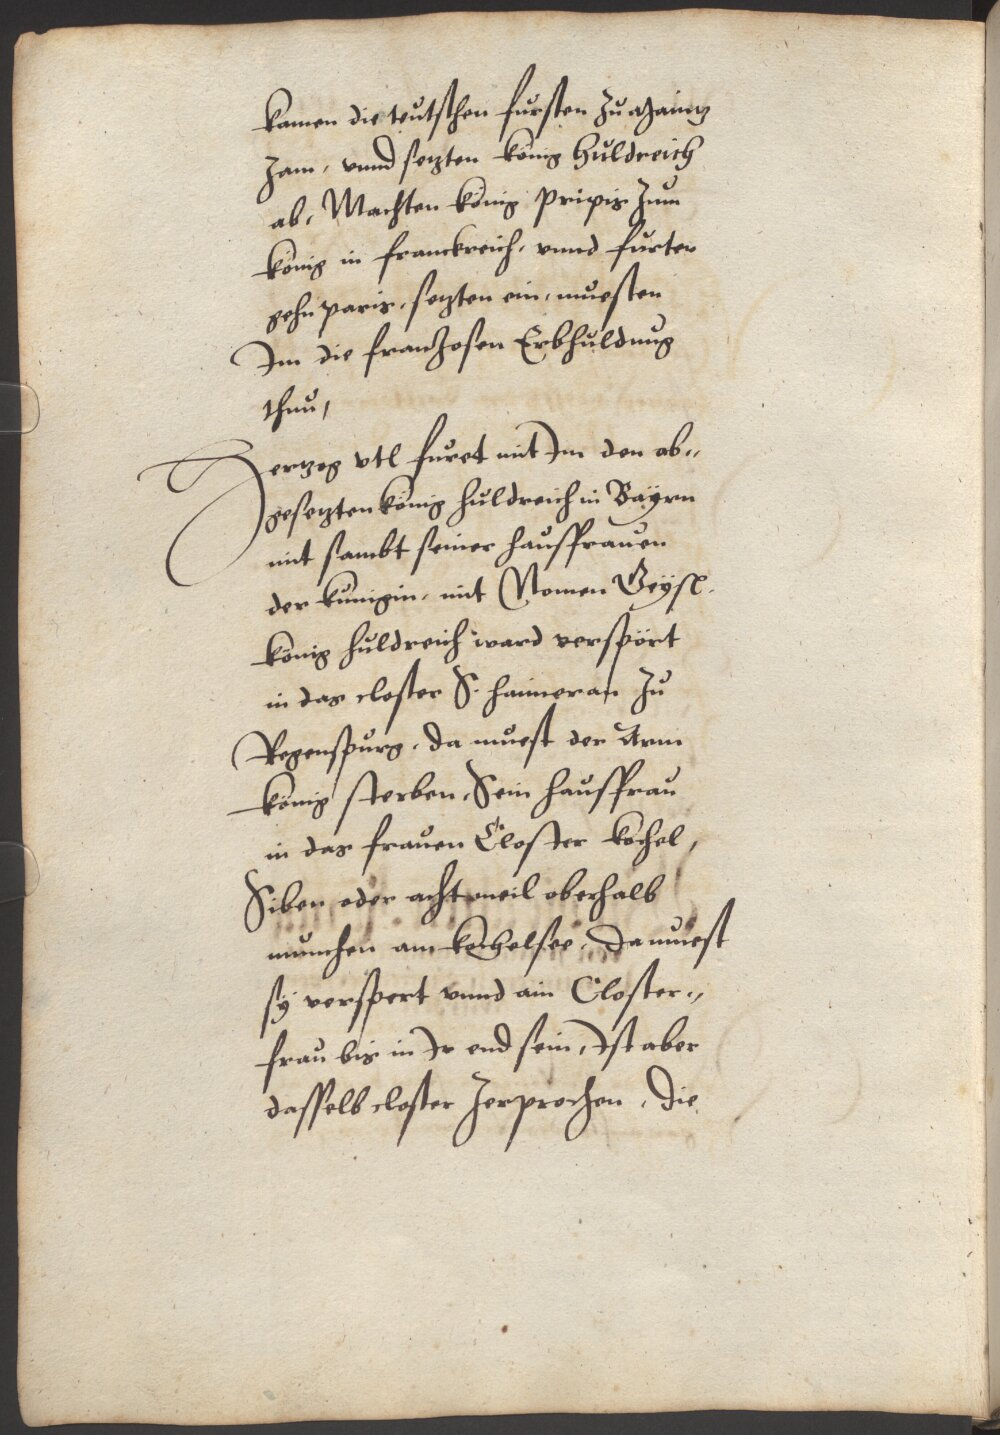 kamen die teutschen fursten zu Maintz
zam, vnnd setzten könig Huldreich
ab, Machten könig Pripis zum
könig in franckreich, vnnd furten
gehn paris, setzten ein, muesten
Im die franzosen Erbhuldnug
thun,
Hertzog vtl furet mit Im den ab„
gesetzten könig huldreich in Bayrn
mit sambt seiner hausfrauen
der kunigin, mit Namen Geysl.
könig huldreich ward verspört
in das closter S. haimeran zu
Regenspurg, da muest der Arm
könig sterben, Sein hausfrau
in das frauen Closter kochel,
Siben oder acht meil oberhalb
munchen am kochelsee, da muest
sy verspert vnnd ain Closter„
frau bis in Ir end sein, Ist aber
dasselb closter zerprochen, die